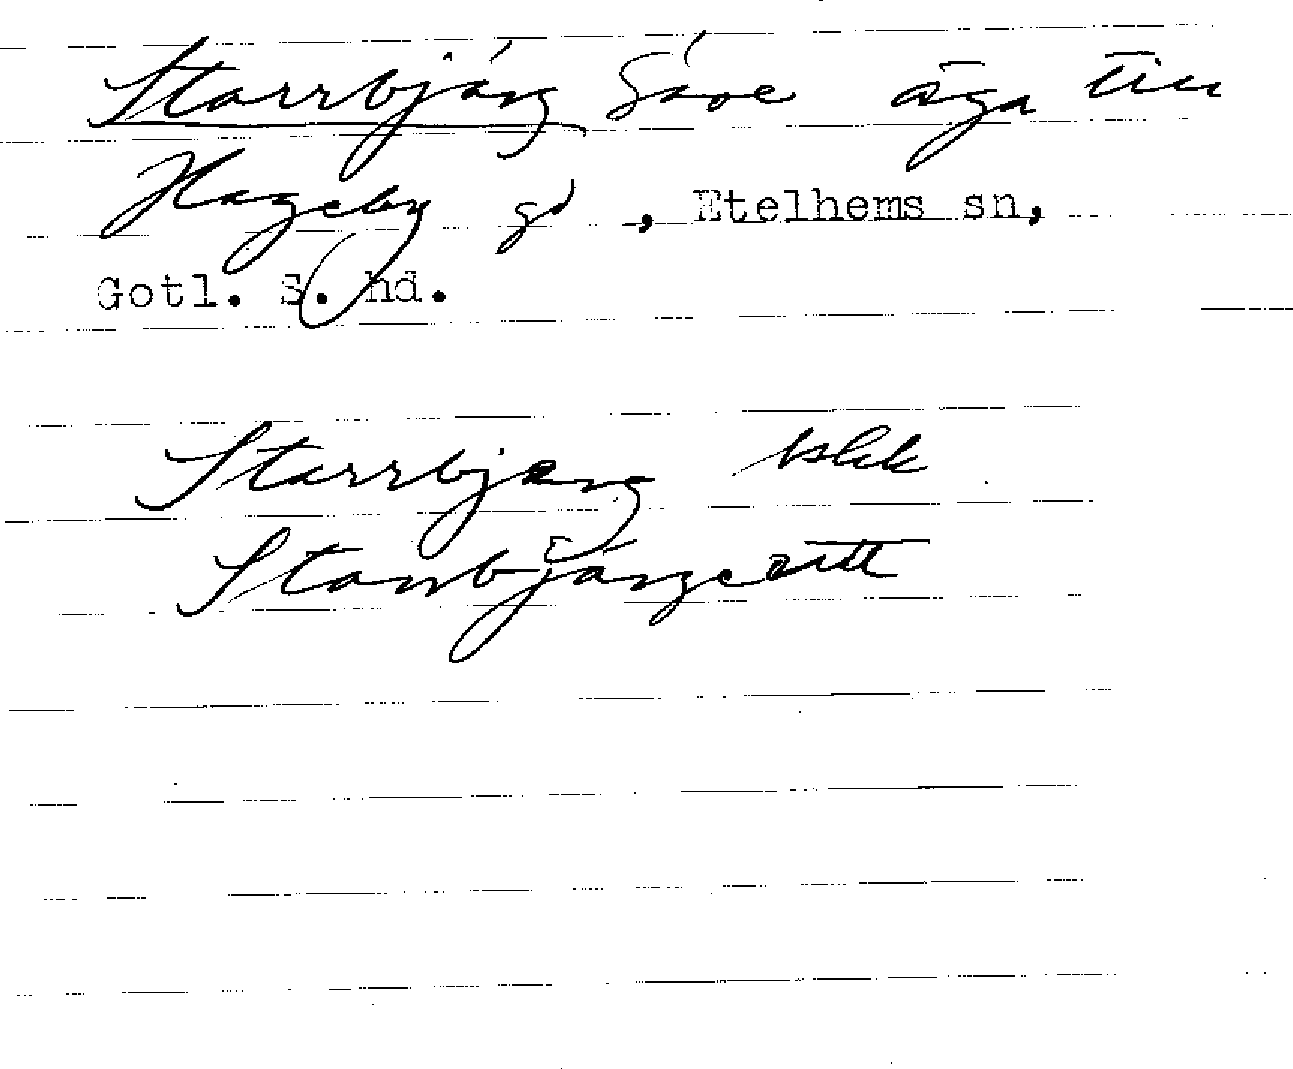 Starrbjáng Säve äga till
Hageby gd, Etelhems sn,
Gotl. S. hd.
Starrbjeng
Starrbjángerätt